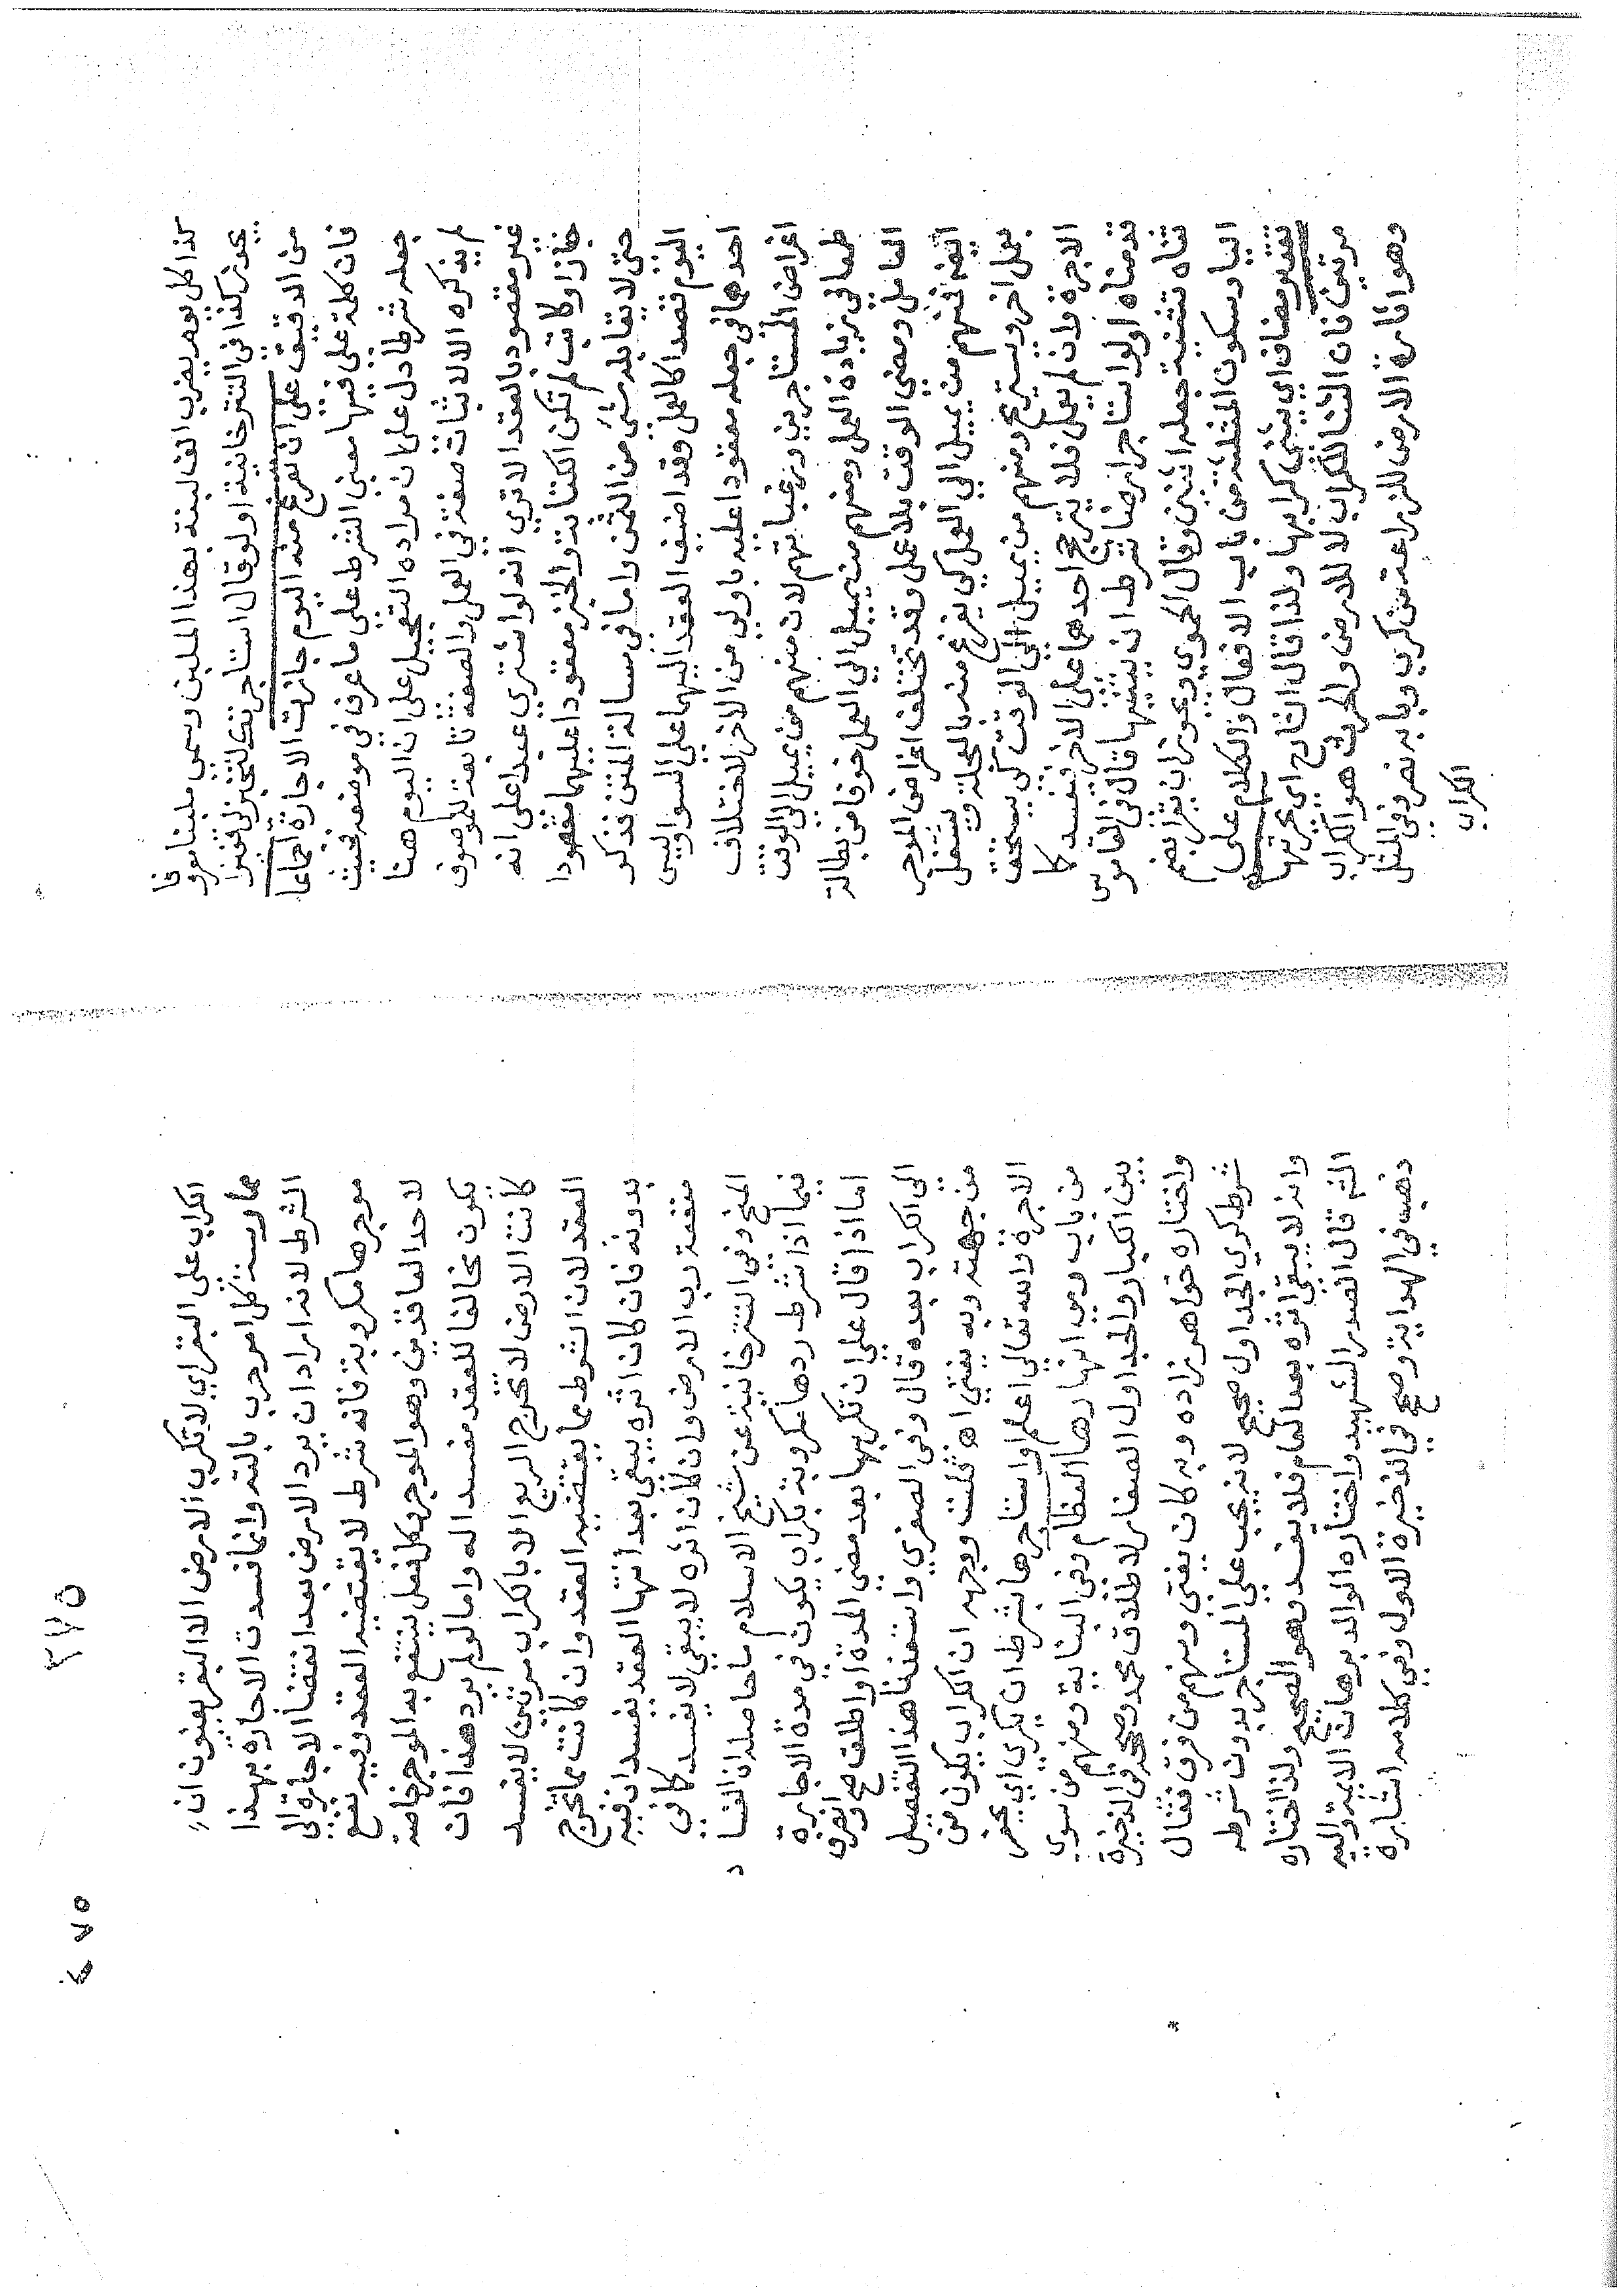 كذا كل يوم يضرب الف لبنة بهذا الملبن وسمى ملبنا معروفا
يجوز كذا فى التترخانية او لو قال استاجرتك لتخبز لى قفيزا
من الدقيق على ان تفرغ منه اليوم جازت الاجارة اجماعا
فان كلمة على فيها معنى الشرط على ما عرف فى موضعه فحيث
جعله شرطا دل على ان مراده التعجيل على ان اليوم هنا
لم يذكره الا لاثبات صفة في العمل والصفة تابعة للموصوف
غير مقصود بالعقد الا تري انه لو اشتري عبدا على انه
خباز او كاتب لم تكن الكتابة والخبز معقودا عليهما مقصودا
حتى لا يقابله شئ من الثمن واما فى مسالة المتن فذكر
اليوم قصدا كالعمل وقد اضيف العقد اليهما على السوا وليس
احدهما فى جعله معقودا عليه باولى من الاخر لاختلاف
اغراض المستاجرين ورغباتهم لان منهم من يميل الى الوقت
طمعا فى زيادة العمل ومنهم من يميل الى العمل خوفا من بطالة
العامل ومضي الوقت بلا عمل وقد تختلف اغراض الموجر
ايضا فمنهم من يميل الى العمل كي يفرغ منه بالعجلة ويشتغل
بعمل اخر ويستريح ومنهم من يميل الى الوقت كي يستحق
الاجرة وان لم يعمل فلا يترجح احدهما على الاخر فيفسد كما
قدمناه او لو استاجر ارضا بشرط ان يثنيها قال فى القاموس
ثناه تثنية جعله اثنين وقال الحموي ويجوز ان يقرا بفتح
اليا وسكون المثلثة من باب الافعال والكلام على
تقدير مضاف اي يثني كرابها ولذا قال الشارح اي يحرثها
مرتين فان الثنا للكراب لا للارض والحرث هو الكراب
وهو اثارة الارض للزراعة من كرب وبابه نصر وفي المثل
الكراب
٣٧٥
٤٧٥
الكراب على البقر اي لا تكرب الارض الا البقر يعنون ان
ممارسة كل امر حرب بالته وانما فسدت الاجارة بهذا
الشرط لانه ان اراد ان يرد الارض بعد انقضا الاجارة الى
موجرها مكروبة فانه شرط لا يقتضيه العقد وفيه نفع
لاحد العاقدين وهو الموجر وكل فعل ينتفع به الموجر خاصة
يكون مخالفا للعقد مفسدا له واما لو لم يرد هذا فان
كانت الارض لا تخرج الريع الا بالكراب مرتين لا يفسد
العقد لان الشرط مما يقتضيه العقد وان كانت مما تخرج
بدونه فان كان اثره يبقى بعد انتها العقد يفسد ان فيه
منفعة رب الارض وان كان اثره لا يبقي لا يفسد كما فى
المنح وفي التترخانية عن شيخ الاسلام ما حاصله ان الفساد
فيما اذا شرط ردها مكروبة بكراب يكون في مدة الاجارة
اما اذا قال على ان تكربها بعد مضي المدة او اطلق صح وانصرف
الى الكراب بعده قال وفى الصغري واستفدنا هذا التفصيل
من جهته وبه يفتي اه قلت ووجهه ان الكراب يكون من
الاجرة والله تعالى اعلم او استاجرها بشرط ان يكرى اي يحفر
من باب رمي انهارها العظام وفى البناية ومنهم من سوى
بين الكبار والجداول الصغار لاطلاق محمد وصححه فى الذخيرة
واختاره خواهر زاده وبه كان يفتى ومنهم من فرق فقال
شرط كري الجداول صحيح لانه يجب على المستاجر بدون شرطه
وانه لا يبقى اثره بعد العام فلا يفسد وهو الصحيح ولذا اختاره
الشم قال الصدر الشهيد واختاره الوالد برهان الائمة واليه
ذهب في الهداية وصحح في الذخيرة الاول وفي كلامه اشارة